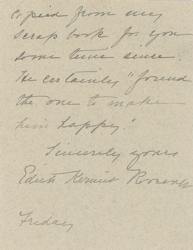 copied from my
scrap book for you
some time since.
He certainly "found
the one to make
him happy."
Sincerely yours
Edith Kermit Roosevelt
Friday